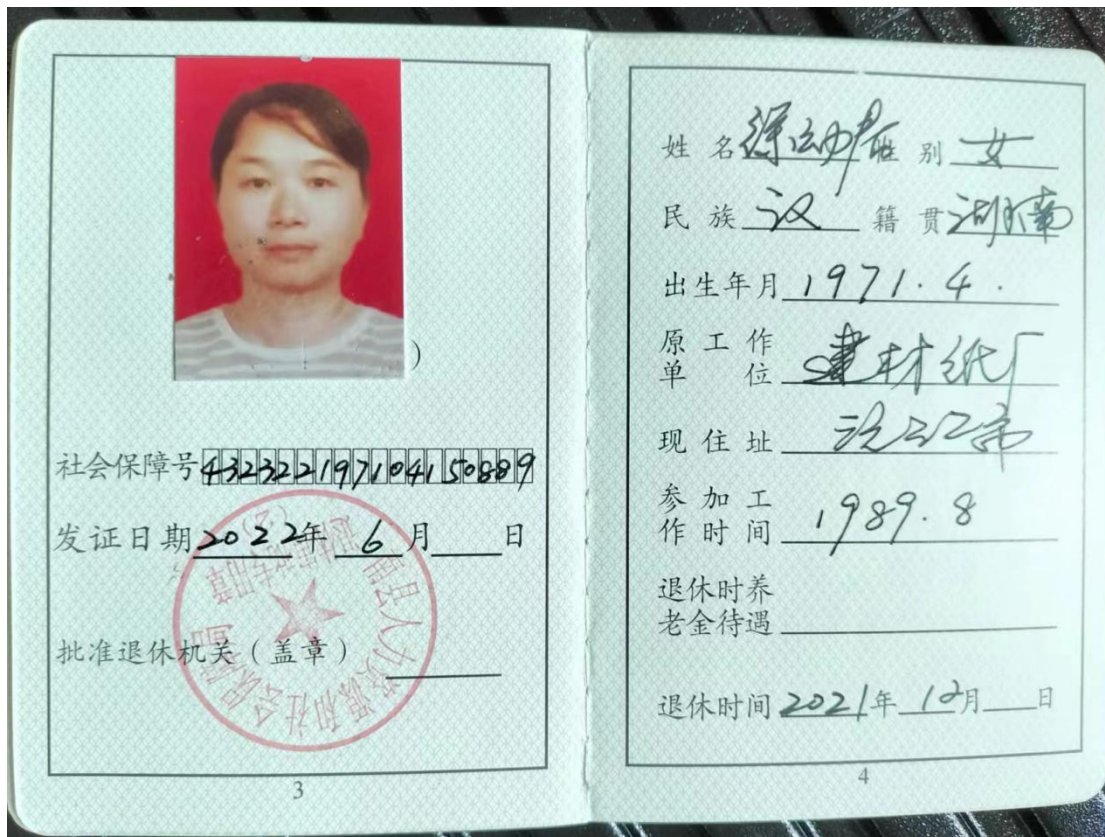 社会保障号 432322197104150889
发证日期 2022年 6月 日
批准退休机关（盖章）
县人力资源和社会保障局
3
姓名 性别 女
民族 汉 籍贯 湖南
出生年月 1971.4.
原工作
单位 建材纸厂
现住址 沅江市
参加工
作时间 1989.8
退休时养
老金待遇
退休时间 2021年 12月 日
4